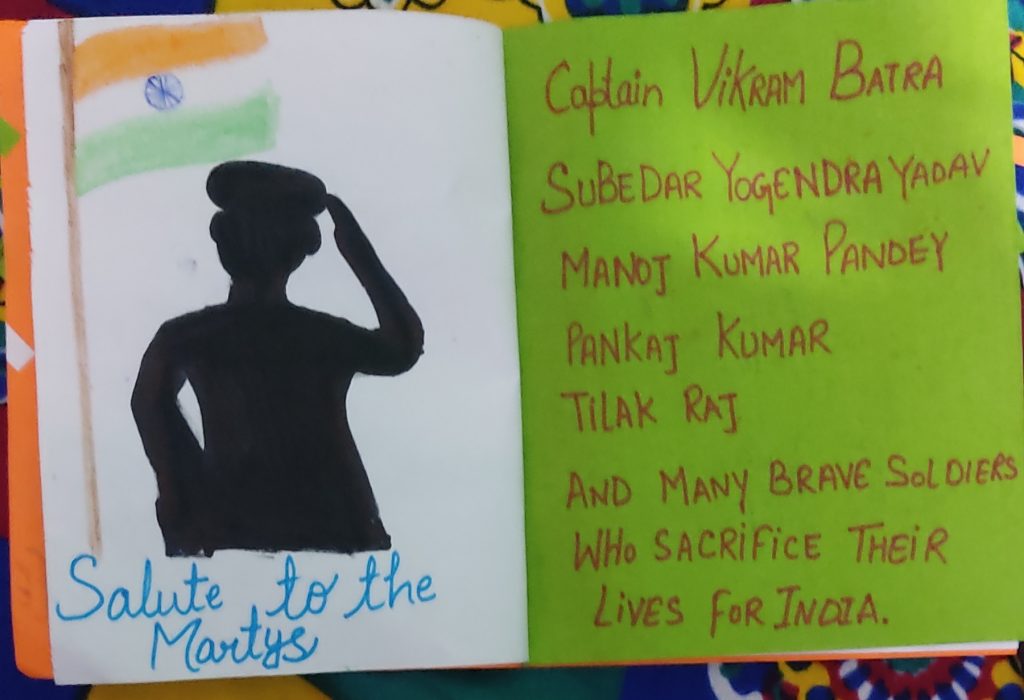 Salute to the
Martys
Captain VIKRAM BATRA
SUBEDAR YOGENDRA YADAV
MANOJ KUMAR PANDEY
PANKAJ KUMAR
TILAK RAJ
AND MANY BRAVE SOLDIERS
WHO SACRIFICE THEIR
LIVES FOR INDIA.